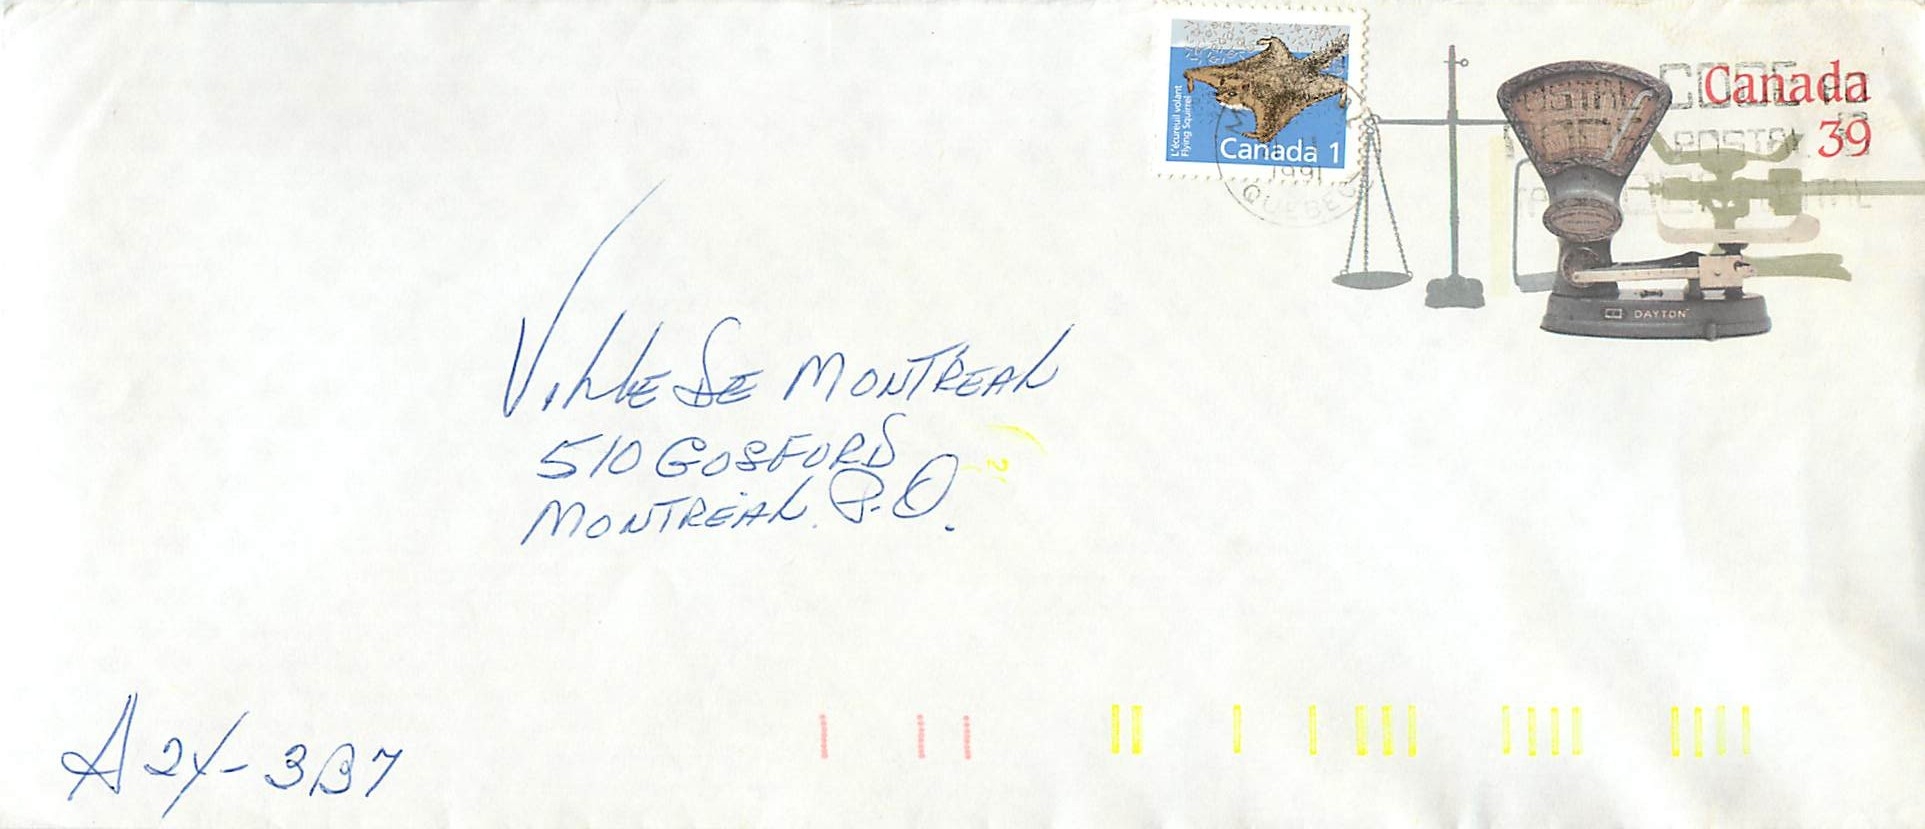 L'écureuil volant
Flying Squirrel
Canada 1
1991
QUÉBEC
CODE
POSTAL
Canada
39
DAYTON
Ville de Montreal
510 Gosford
Montreal. P.Q.
A2Y-3B7